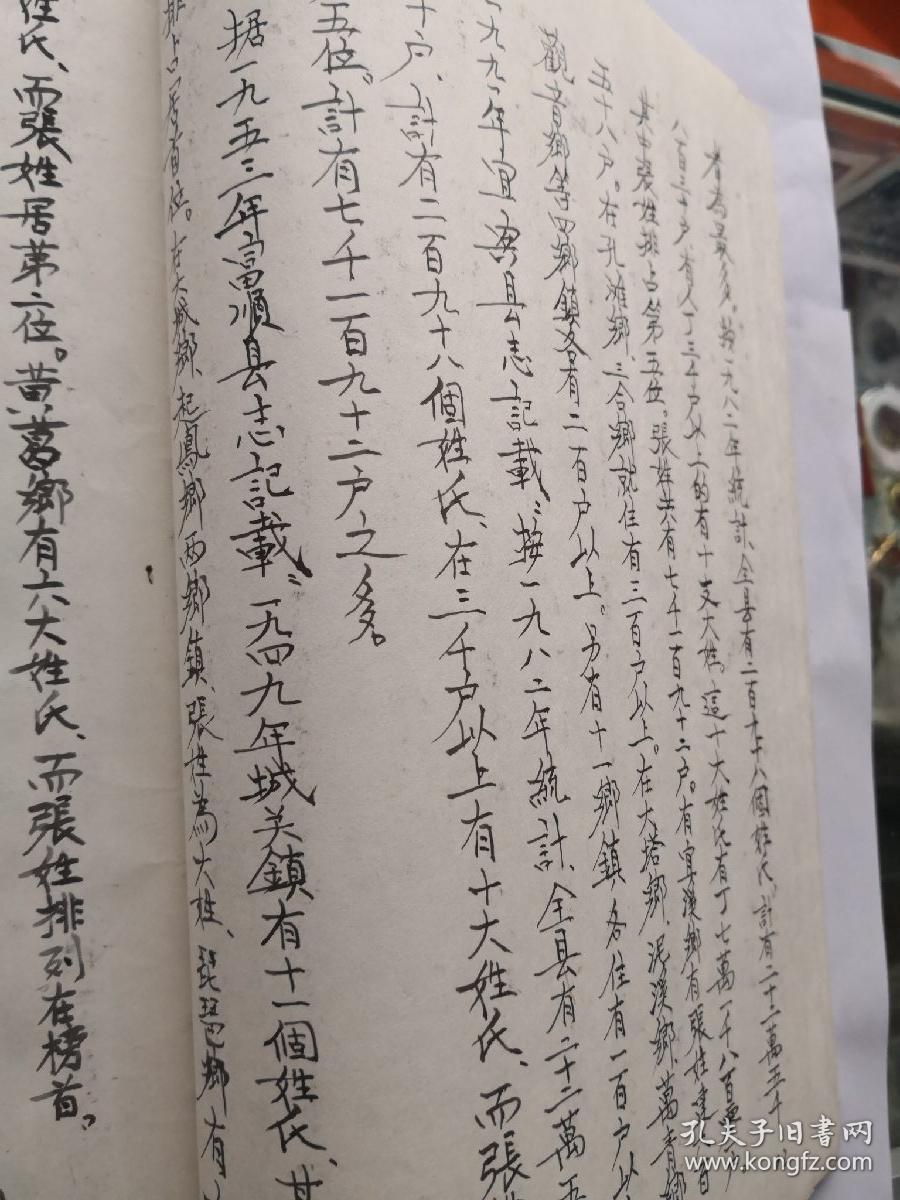 者為最多。按一九八二年統計、全县有二百九十八個姓氏、計有二十二萬五千
八百三十户、有人丁三千户以上的有十支大姓、這十大姓氏有丁七萬一千八百
其中張姓排占第五位。張姓共有七千一百九十二户。有宜溪鄉有張姓
五十八户。在孔滩鄉、三合鄉就住有三百户以上。在大塔鄉、泥溪鄉、萬青鄉
觀音鄉等四鄉鎮各有二百户以上。另有十一鄉鎮各住有一百户以
九九一年宜宾县志記載、按一九八二年統計、全县有二十二萬五
十户、計有二百九十八個姓氏、在三千户以上有十大姓氏、而張
五位。計有七千一百九十二户之多。
据一九五三年富順县志記載、一九四九年城关鎮有十一個姓氏、其
排占居首位。在大城鄉、起鳳鄉两鄉鎮、張姓為大姓、琵琶鄉有
姓氏、而張姓居第二位。黄葛鄉有六大姓氏、而張姓排列在榜首。
孔夫子旧书网
www.kongfz.com